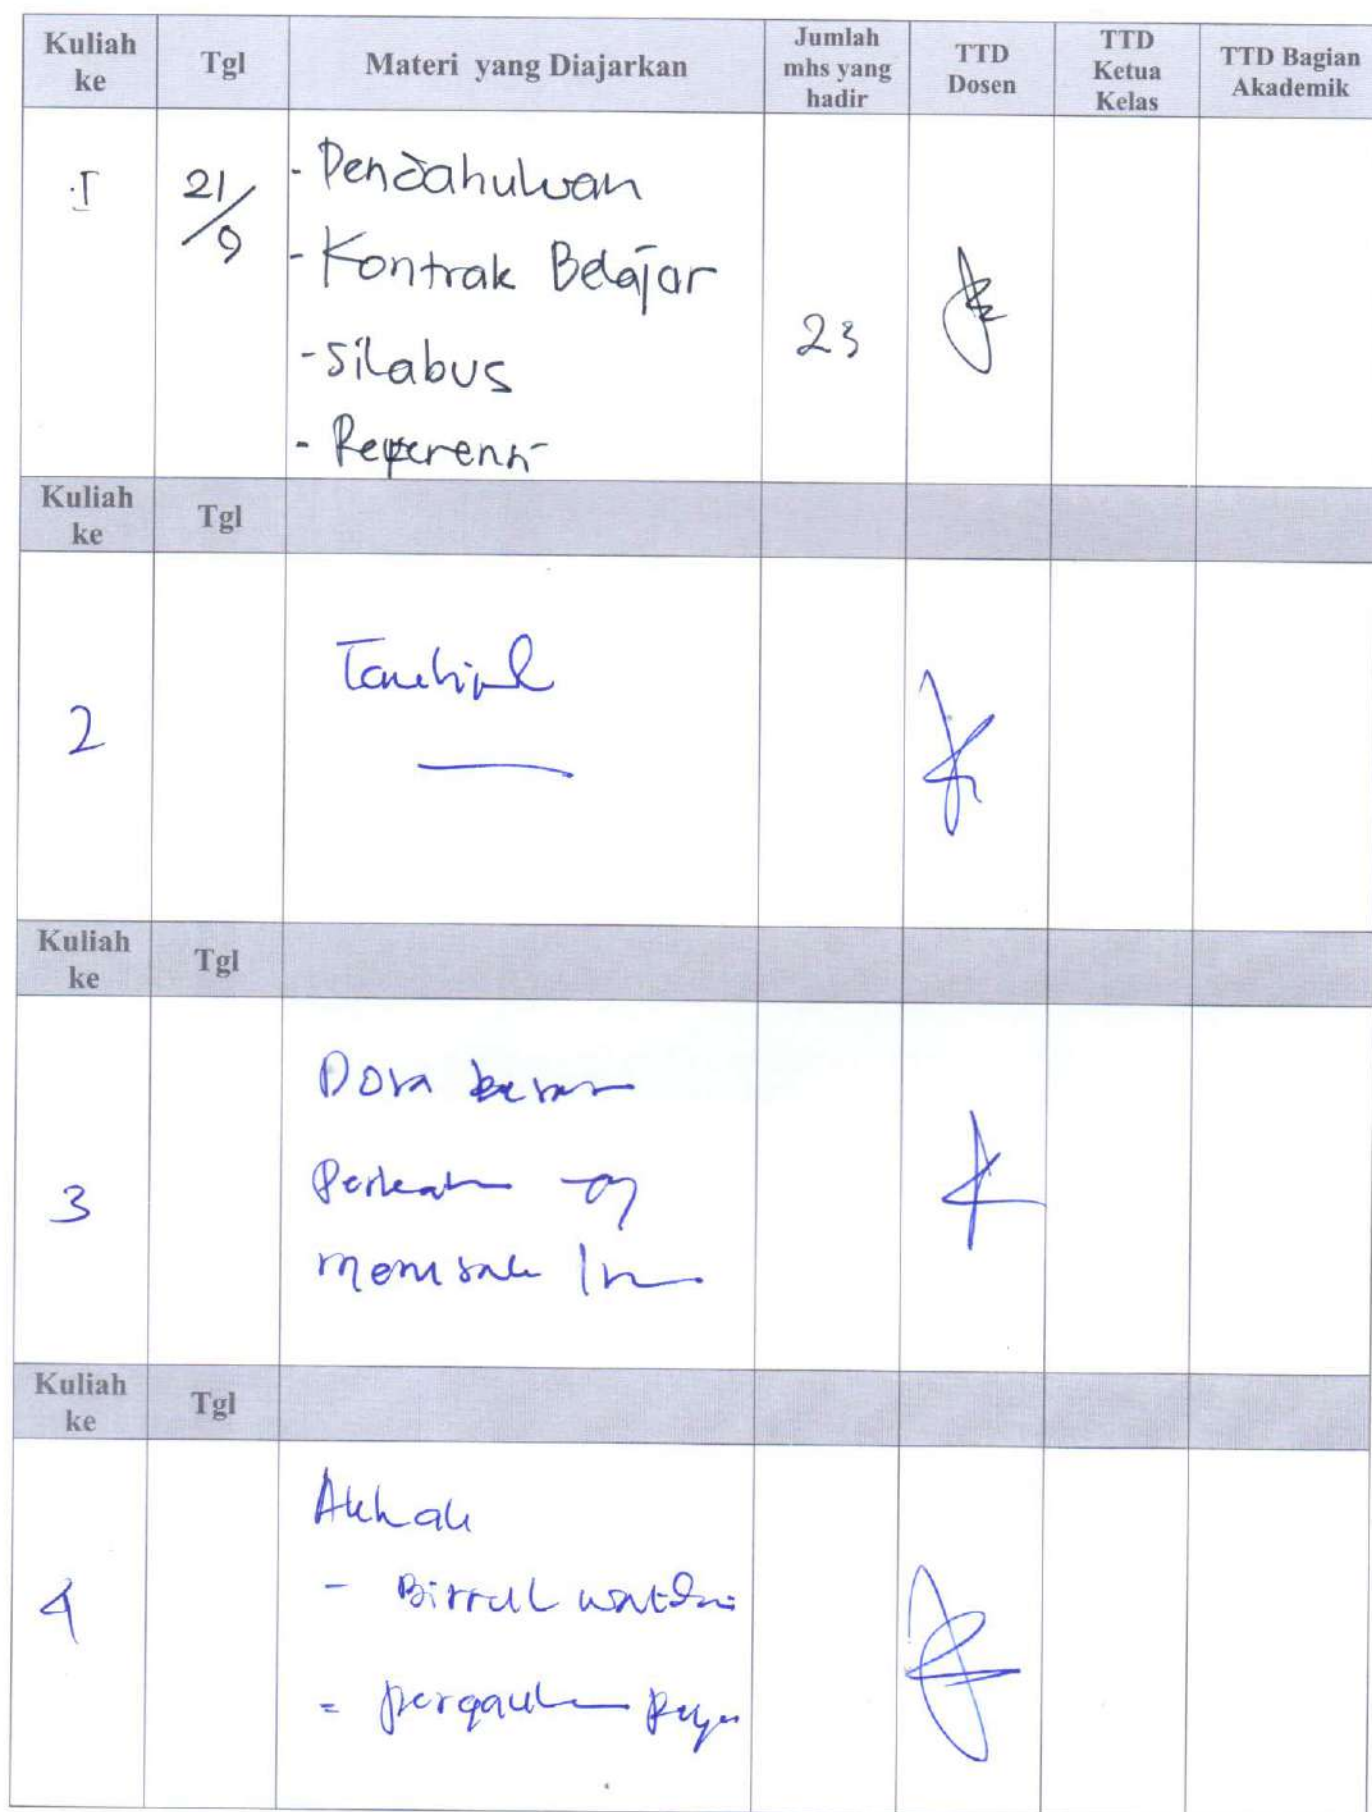 Kuliah ke Tgl Materi yang Diajarkan Jumlah mhs yang hadir TTD Dosen TTD Ketua Kelas TTD Bagian Akademik
I 21/9 - Pendahuluan
- Kontrak Belajar
23
- Silabus
- Referensi
Kuliah ke Tgl
2
Kuliah ke Tgl
Dosa besar
3
Kuliah ke Tgl
Akhlak
4 - Birrul
= pergaulan